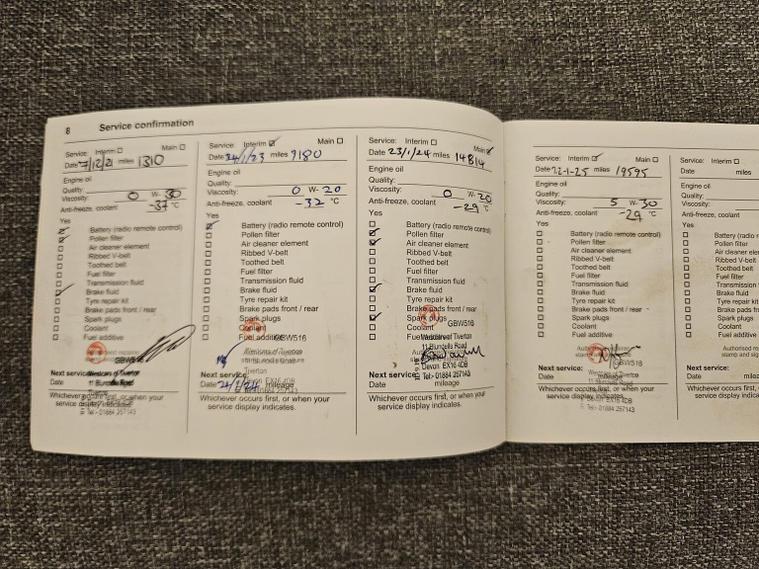 8 Service confirmation
Service: Interim Main
Date 7/12/21 miles 1310
Engine oil
Quality:
Viscosity: 0 W- 30
Anti-freeze, coolant -37 °C
Yes
Battery (radio remote control)
Pollen filter
Air cleaner element
Ribbed V-belt
Toothed belt
Fuel filter
Transmission fluid
Brake fluid
Tyre repair kit
Brake pads front / rear
Spark plugs
Coolant
Fuel additive
GBW516
Next service:
Date
11 Blundells Road
Whichever occurs first, or when your
service display indicates.
Tel:- 01884 257143
Service: Interim Main
Date 24/1/23 miles 9180
Engine oil
Quality:
Viscosity: 0 W- 20
Anti-freeze, coolant -32 °C
Yes
Battery (radio remote control)
Pollen filter
Air cleaner element
Ribbed V-belt
Toothed belt
Fuel filter
Transmission fluid
Brake fluid
Tyre repair kit
Brake pads front / rear
Spark plugs
Coolant
Fuel additive GBW516
Tiverton
Next service:
Date mileage
Whichever occurs first, or when your
service display indicates.
Tel:- 01884 257143
Service: Interim Main
Date 23/1/24 miles 14814
Engine oil
Quality:
Viscosity: 0 W- 20
Anti-freeze, coolant -29 °C
Yes
Battery (radio remote control)
Pollen filter
Air cleaner element
Ribbed V-belt
Toothed belt
Fuel filter
Transmission fluid
Brake fluid
Tyre repair kit
Brake pads front / rear
Spark plugs
Coolant GBW516
11 Blundells Road
Devon EX16 4DB
Next service: Tel:- 01884 257143
Date mileage
Whichever occurs first, or when your
service display indicates.
Service: Interim Main
Date 22-1-25 miles 19595
Engine oil
Quality:
Viscosity: 5 W- 30
Anti-freeze, coolant -29 °C
Yes
Battery (radio remote control)
Pollen filter
Air cleaner element
Ribbed V-belt
Toothed belt
Fuel filter
Transmission fluid
Brake fluid
Tyre repair kit
Brake pads front / rear
Spark plugs
Coolant
Fuel additive
GBW516
Next service:
Date mileage
Whichever occurs first, or when your
service display indicates.
Tel:- 01884 257143
Service: Interim
Date miles
Engine oil
Quality:
Viscosity:
Anti-freeze, coolant
Yes
Battery (radio
Pollen filter
Air cleaner
Ribbed V-belt
Toothed belt
Fuel filter
Transmission
Brake fluid
Tyre repair kit
Brake pads
Spark plugs
Coolant
Fuel additive
Next service:
Date
Whichever occurs
service display